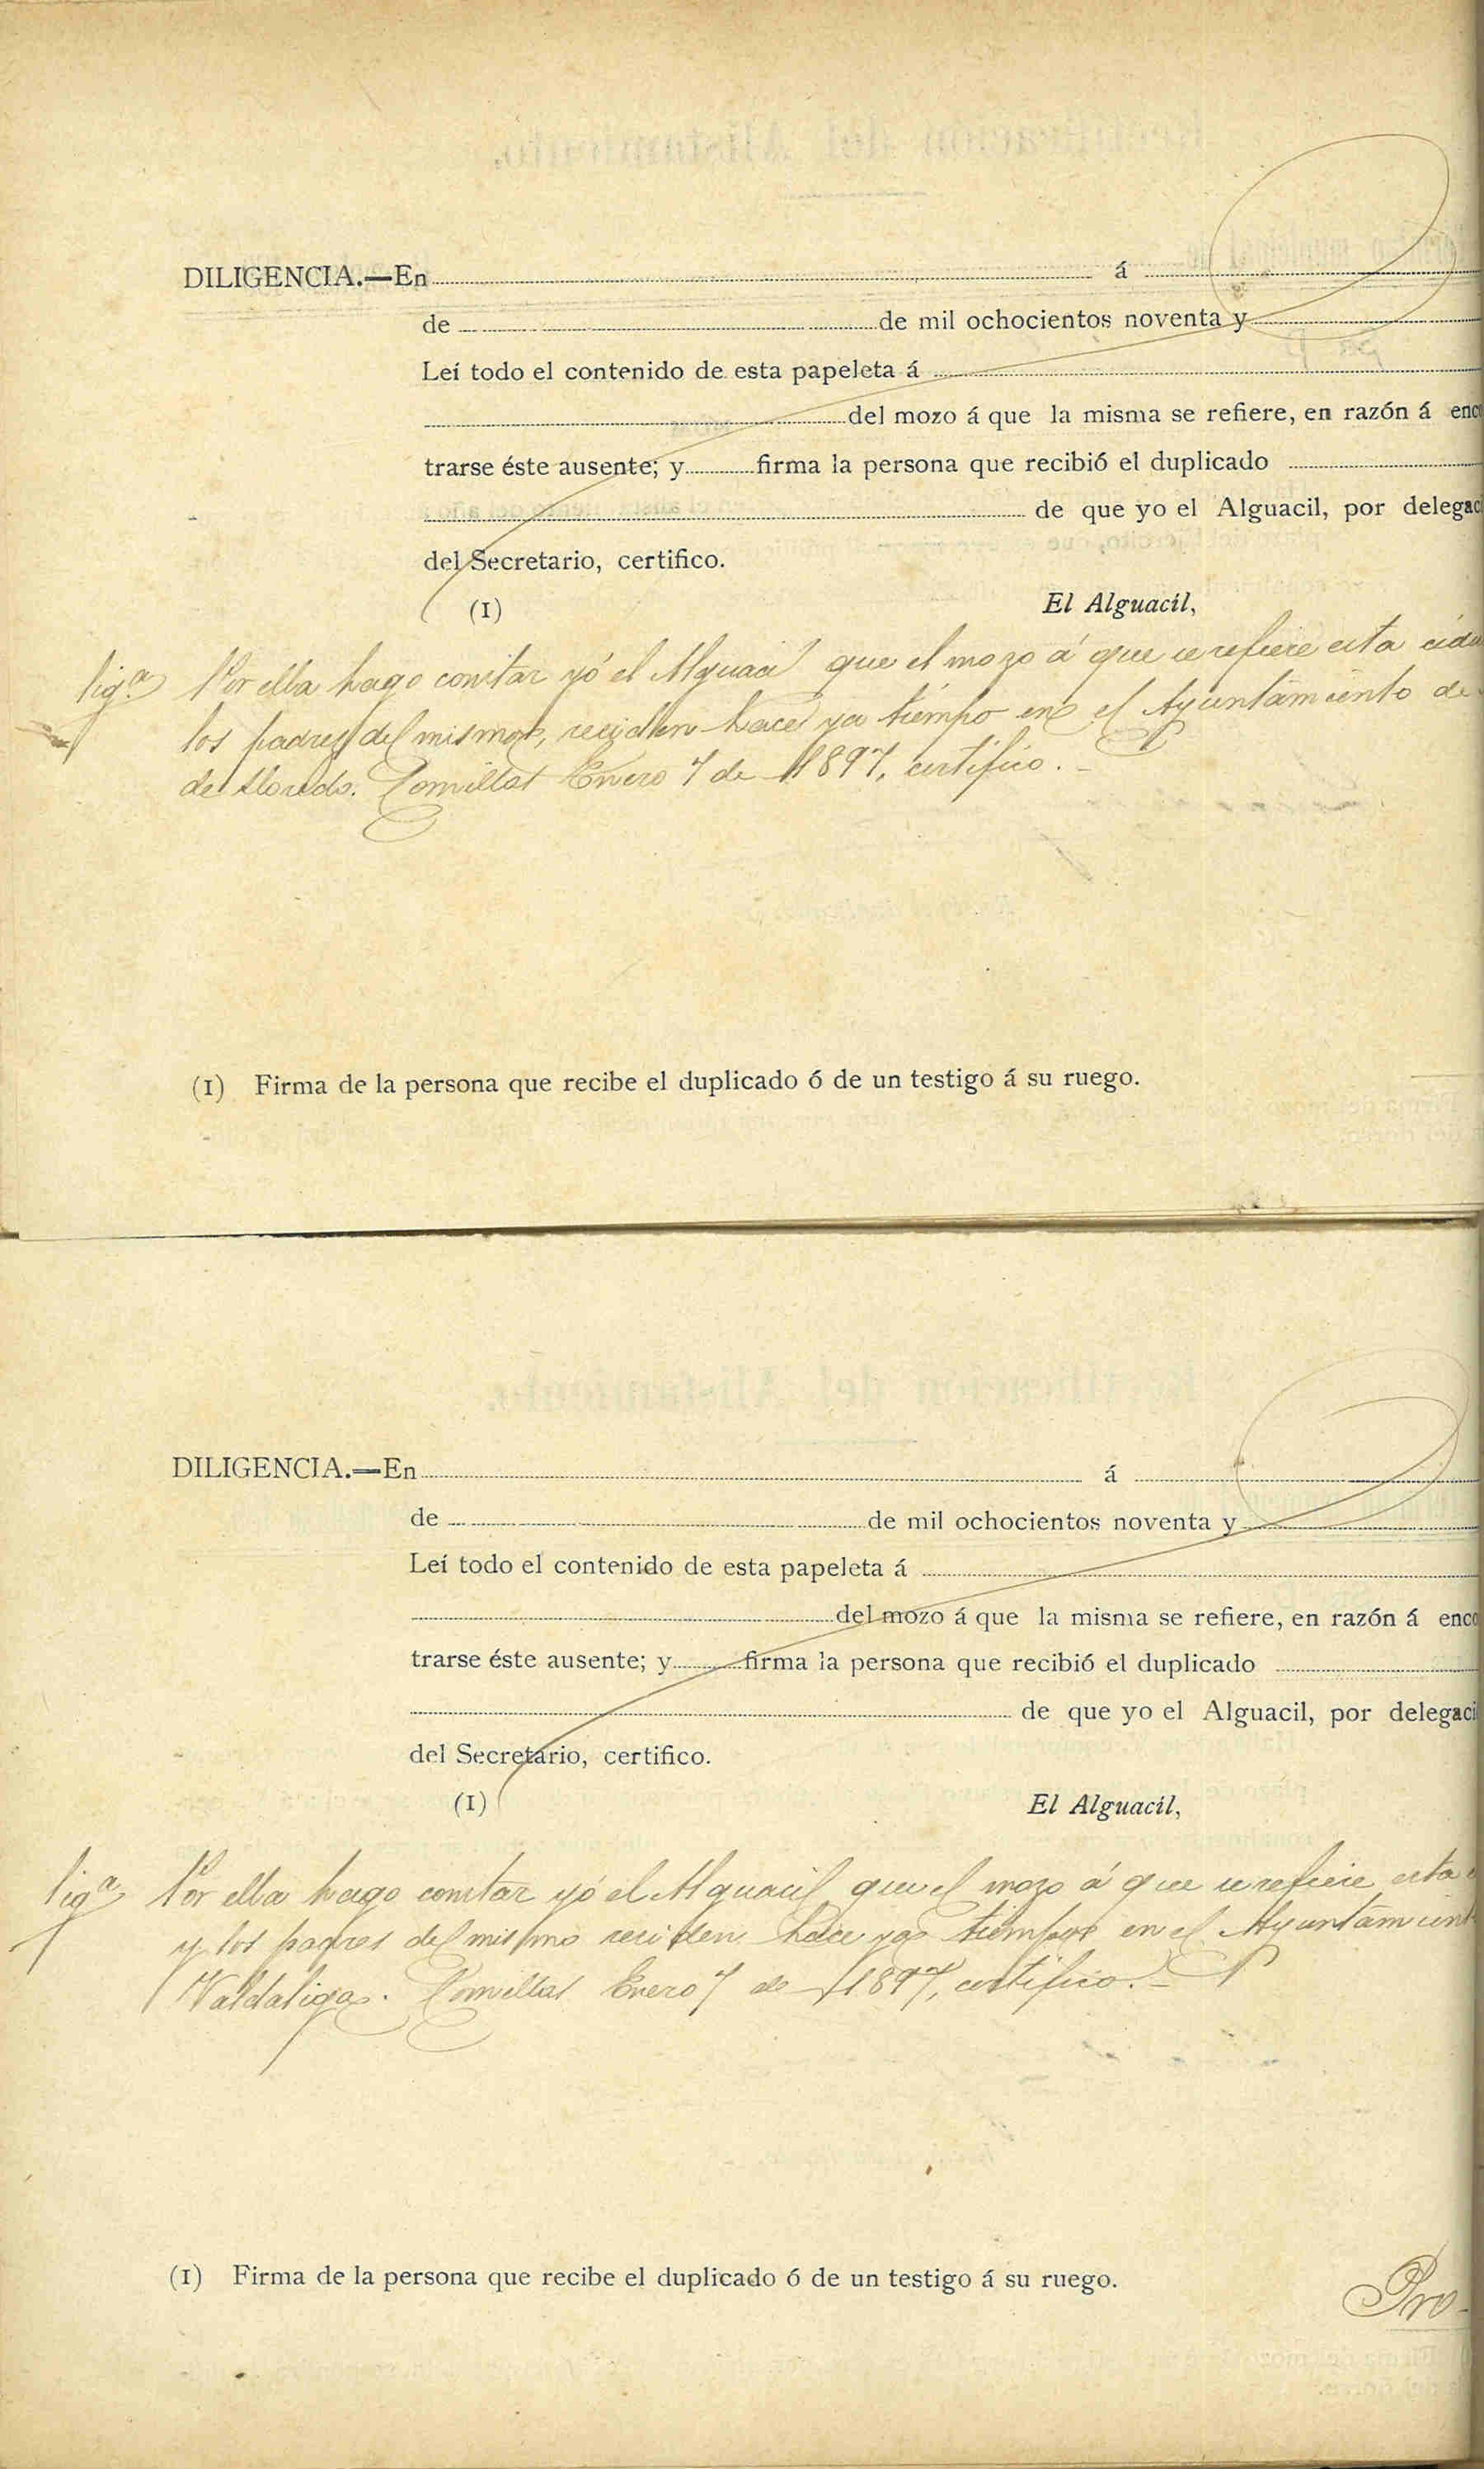 DILIGENCIA.—En á
de de mil ochocientos noventa y
Leí todo el contenido de esta papeleta á
del mozo á que la misma se refiere, en razón á enco
trarse éste ausente; y firma la persona que recibió el duplicado
de que yo el Alguacil, por delegaci
del Secretario, certifico.
(1) El Alguacil,
ligª Por ella hago constar yó el Alguacil que el mozo á que se refiere esta cédu
los padres del mismo, residen hace ya tiempo en el Ayuntamiento de
de Lloredo. Comillas Enero 7 de 1897, certifico.
(1) Firma de la persona que recibe el duplicado ó de un testigo á su ruego.
DILIGENCIA.—En á
de de mil ochocientos noventa y
Leí todo el contenido de esta papeleta á
del mozo á que la misma se refiere, en razón á enco
trarse éste ausente; y firma la persona que recibió el duplicado
de que yo el Alguacil, por delegaci
del Secretario, certifico.
(1) El Alguacil,
ligª Por ella hago constar yó el Alguacil que el mozo á que se refiere esta
y los padres del mismo residen hace ya tiempo en el Ayuntamient
Valdaliga. Comillas Enero 7 de 1897, certifico.
(1) Firma de la persona que recibe el duplicado ó de un testigo á su ruego.
Pro-